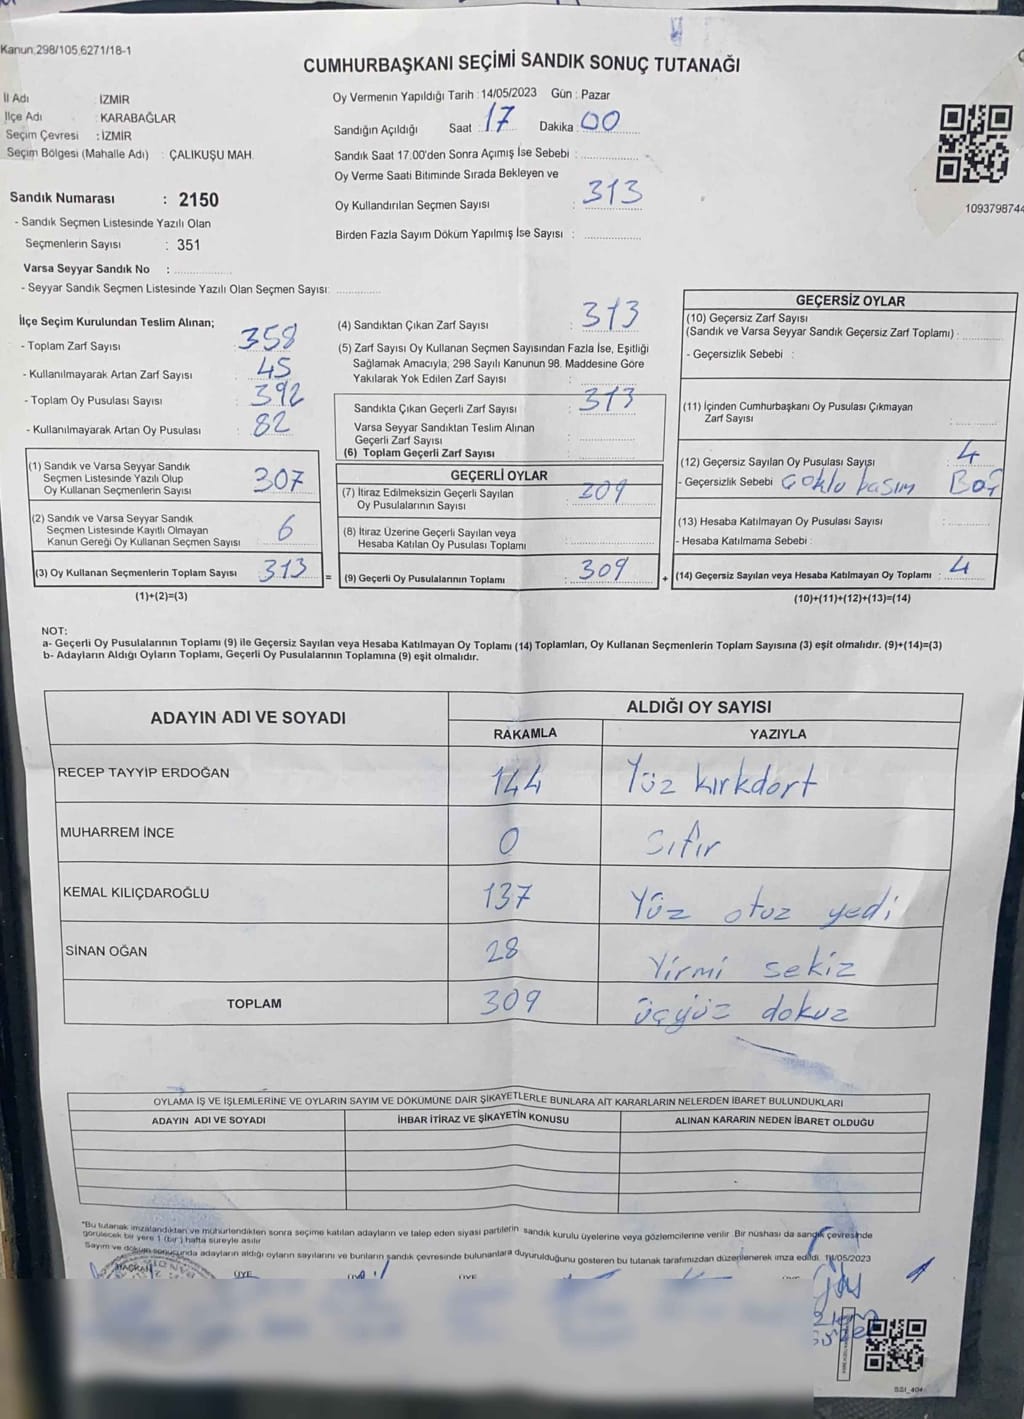 Kanun,298/105,6271/18-1
CUMHURBAŞKANI SEÇİMİ SANDIK SONUÇ TUTANAĞI
İl Adı : İZMİR
İlçe Adı : KARABAĞLAR
Seçim Çevresi : İZMİR
Seçim Bölgesi (Mahalle Adı) : ÇALIKUŞU MAH.
Sandık Numarası : 2150
- Sandık Seçmen Listesinde Yazılı Olan
Seçmenlerin Sayısı : 351
Varsa Seyyar Sandık No :
- Seyyar Sandık Seçmen Listesinde Yazılı Olan Seçmen Sayısı:
Oy Vermenin Yapıldığı Tarih : 14/05/2023 Gün : Pazar
Sandığın Açıldığı Saat 17 Dakika 00
Sandık Saat 17.00'den Sonra Açımış İse Sebebi :
Oy Verme Saati Bitiminde Sırada Bekleyen ve
Oy Kullandırılan Seçmen Sayısı : 313
Birden Fazla Sayım Döküm Yapılmış İse Sayısı :
1093798744
İlçe Seçim Kurulundan Teslim Alınan;
- Toplam Zarf Sayısı : 358
- Kullanılmayarak Artan Zarf Sayısı : 45
- Toplam Oy Pusulası Sayısı : 392
- Kullanılmayarak Artan Oy Pusulası : 82
(1) Sandık ve Varsa Seyyar Sandık
Seçmen Listesinde Yazılı Olup
Oy Kullanan Seçmenlerin Sayısı : 307
(2) Sandık ve Varsa Seyyar Sandık
Seçmen Listesinde Kayıtlı Olmayan
Kanun Gereği Oy Kullanan Seçmen Sayısı : 6
(3) Oy Kullanan Seçmenlerin Toplam Sayısı : 313
(1)+(2)=(3)
(4) Sandıktan Çıkan Zarf Sayısı : 313
(5) Zarf Sayısı Oy Kullanan Seçmen Sayısından Fazla İse, Eşitliği
Sağlamak Amacıyla, 298 Sayılı Kanunun 98. Maddesine Göre
Yakılarak Yok Edilen Zarf Sayısı :
Sandıkta Çıkan Geçerli Zarf Sayısı : 313
Varsa Seyyar Sandıktan Teslim Alınan
Geçerli Zarf Sayısı :
(6) Toplam Geçerli Zarf Sayısı :
GEÇERLİ OYLAR
(7) İtiraz Edilmeksizin Geçerli Sayılan
Oy Pusulalarının Sayısı : 209
(8) İtiraz Üzerine Geçerli Sayılan veya
Hesaba Katılan Oy Pusulası Toplamı :
= (9) Geçerli Oy Pusulalarının Toplamı : 309 +
GEÇERSİZ OYLAR
(10) Geçersiz Zarf Sayısı
(Sandık ve Varsa Seyyar Sandık Geçersiz Zarf Toplamı) :
- Geçersizlik Sebebi :
(11) İçinden Cumhurbaşkanı Oy Pusulası Çıkmayan
Zarf Sayısı
(12) Geçersiz Sayılan Oy Pusulası Sayısı : 4
- Geçersizlik Sebebi Çoklu basım Boş
(13) Hesaba Katılmayan Oy Pusulası Sayısı
- Hesaba Katılmama Sebebi :
(14) Geçersiz Sayılan veya Hesaba Katılmayan Oy Toplamı : 4
(10)+(11)+(12)+(13)=(14)
NOT:
a- Geçerli Oy Pusulalarının Toplamı (9) ile Geçersiz Sayılan veya Hesaba Katılmayan Oy Toplamı (14) Toplamları, Oy Kullanan Seçmenlerin Toplam Sayısına (3) eşit olmalıdır. (9)+(14)=(3)
b- Adayların Aldığı Oyların Toplamı, Geçerli Oy Pusulalarının Toplamına (9) eşit olmalıdır.
ADAYIN ADI VE SOYADI
ALDIĞI OY SAYISI
RAKAMLA YAZIYLA
RECEP TAYYİP ERDOĞAN 144 Yüz kırkdort
MUHARREM İNCE 0 Sıfır
KEMAL KILIÇDAROĞLU 137 Yüz otuz yedi
SİNAN OĞAN 28 Yirmi sekiz
TOPLAM 309 üçyüz dokuz
OYLAMA İŞ VE İŞLEMLERİNE VE OYLARIN SAYIM VE DÖKÜMÜNE DAİR ŞİKAYETLERLE BUNLARA AİT KARARLARIN NELERDEN İBARET BULUNDUKLARI
ADAYIN ADI VE SOYADI İHBAR İTİRAZ VE ŞİKAYETİN KONUSU ALINAN KARARIN NEDEN İBARET OLDUĞU
*Bu tutanak imzalandıktan ve mühürlendikten sonra seçime katılan adayların ve talep eden siyasi partilerin sandık kurulu üyelerine veya gözlemcilerine verilir. Bir nüshası da sandık çevresinde
görülecek bir yere 1 (bir) hafta süreyle asılır.
Sayım ve döküm sonucunda adayların aldığı oyların sayılarını ve bunların sandık çevresinde bulunanlara duyurulduğunu gösteren bu tutanak tarafımızdan düzenlenerek imza edildi. 14/05/2023
BAŞKAN ÜYE
SSI_404